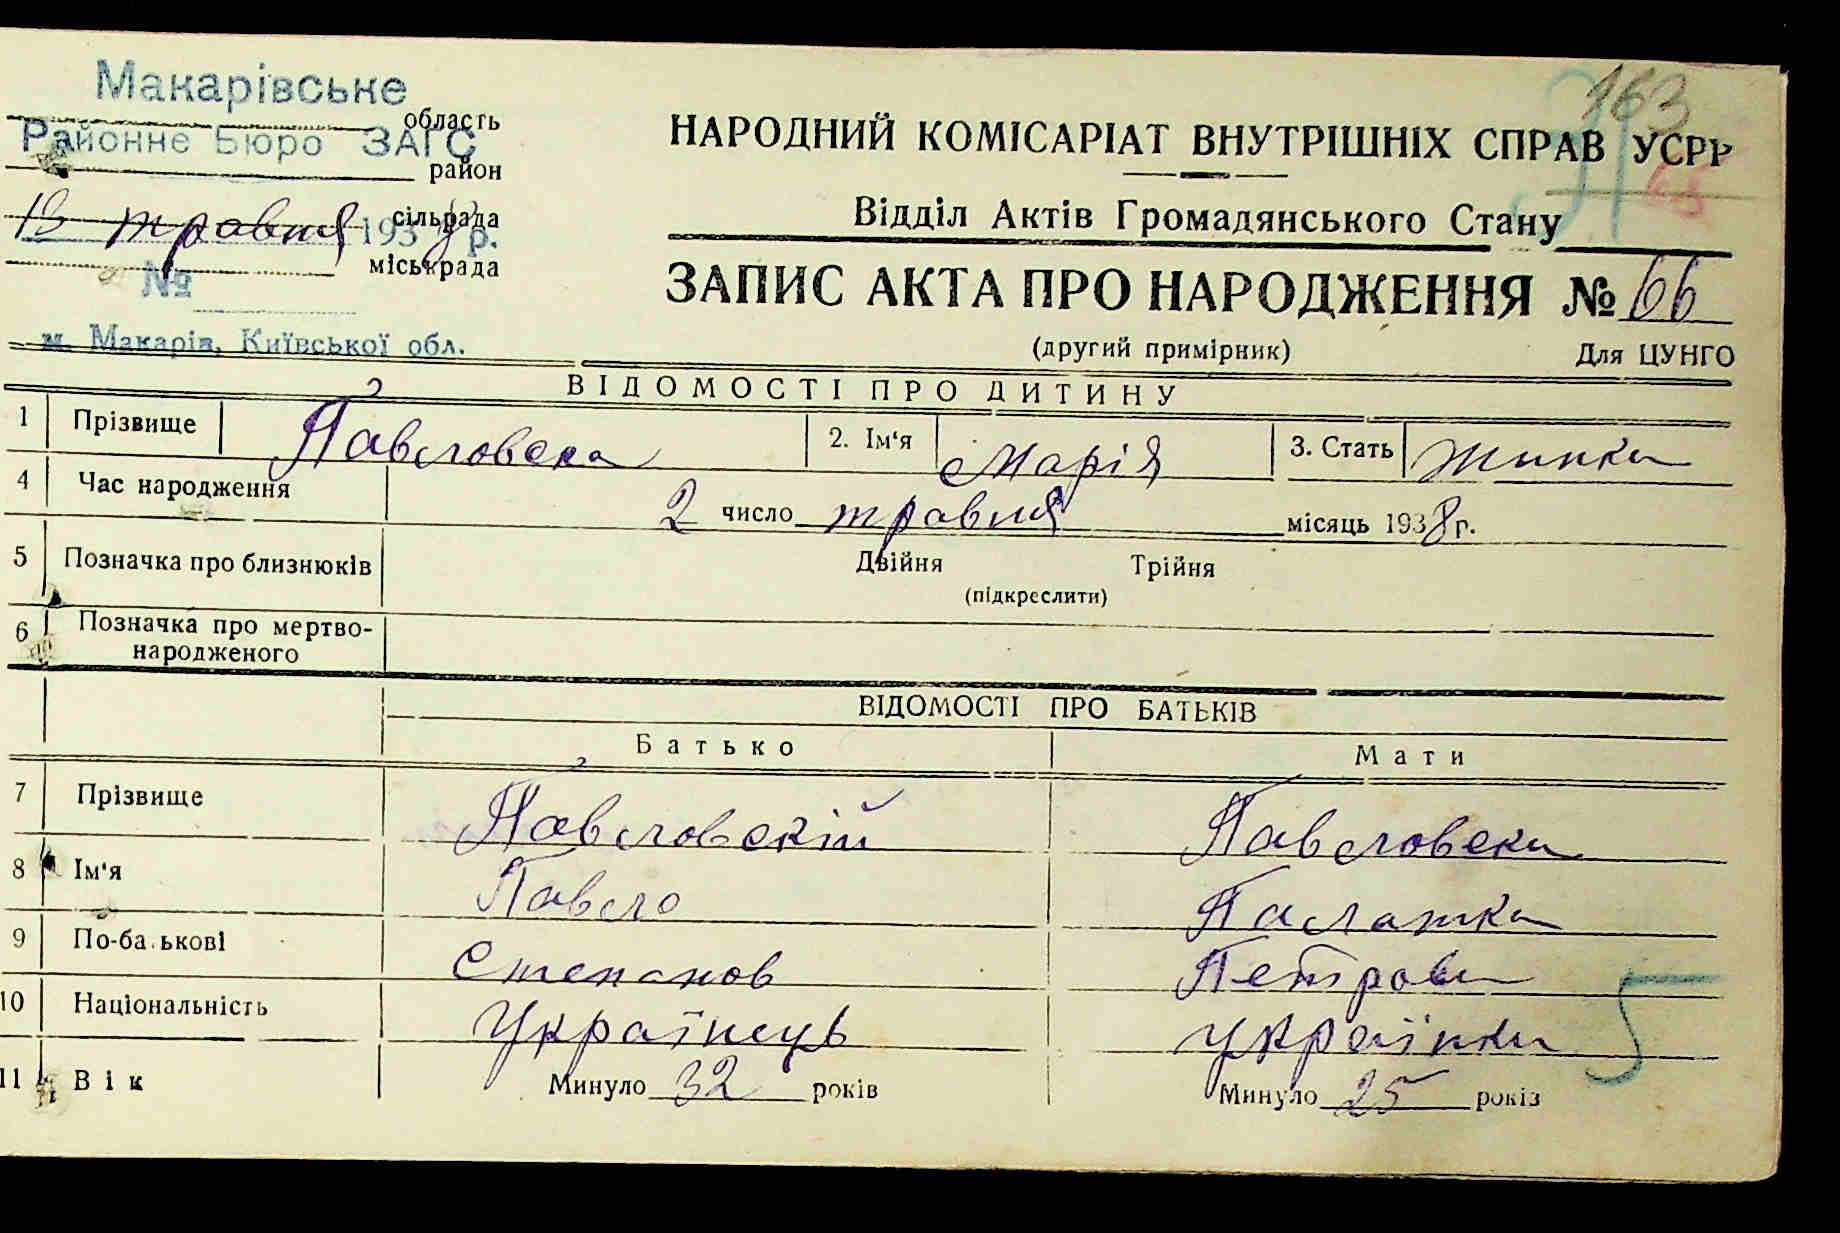 163
65
Макарівське
область
Районне Бюро ЗАГС
район
13 травня 1938 р.
сільрада
міськрада
№
м. Макарів, Київської обл.
НАРОДНИЙ КОМІСАРІАТ ВНУТРІШНІХ СПРАВ УСРР
Відділ Актів Громадянського Стану
ЗАПИС АКТА ПРО НАРОДЖЕННЯ № 66
(другий примірник) Для ЦУНГО
ВІДОМОСТІ ПРО ДИТИНУ
1 Прізвище Павловска 2. Ім'я Марія 3. Стать Жинка
4 Час народження 2 число травня місяць 1938 г.
5 Позначка про близнюків Двійня Трійня
(підкреслити)
6 Позначка про мертво-
народженого
ВІДОМОСТІ ПРО БАТЬКІВ
Батько Мати
7 Прізвище Павловскій Павловска
8 Ім'я Павло Палажка
9 По-батькові Степанов Петрова
10 Національність Українець українка
11 Вік Минуло 32 років Минуло 25 років
5